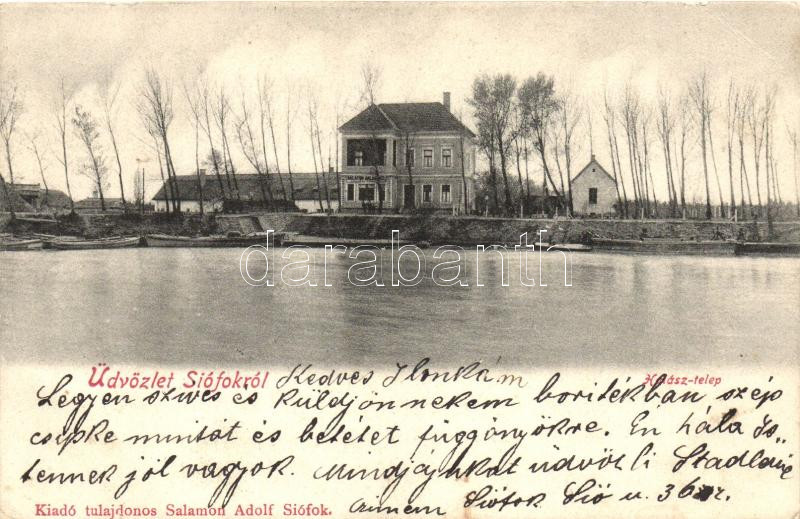 darabanth
Üdvözlet Siófokról Kedves Ilonkám Halász-telep
Legyen szives és küldjön nekem boritékban szép
csipke mintát és betétet függönyökre. Én hála Is-
tennek jól vagyok. Mindjájukat üdvözli
Cimem Siófok Sió u. 36
Kiadó tulajdonos Salamon Adolf Siófok.